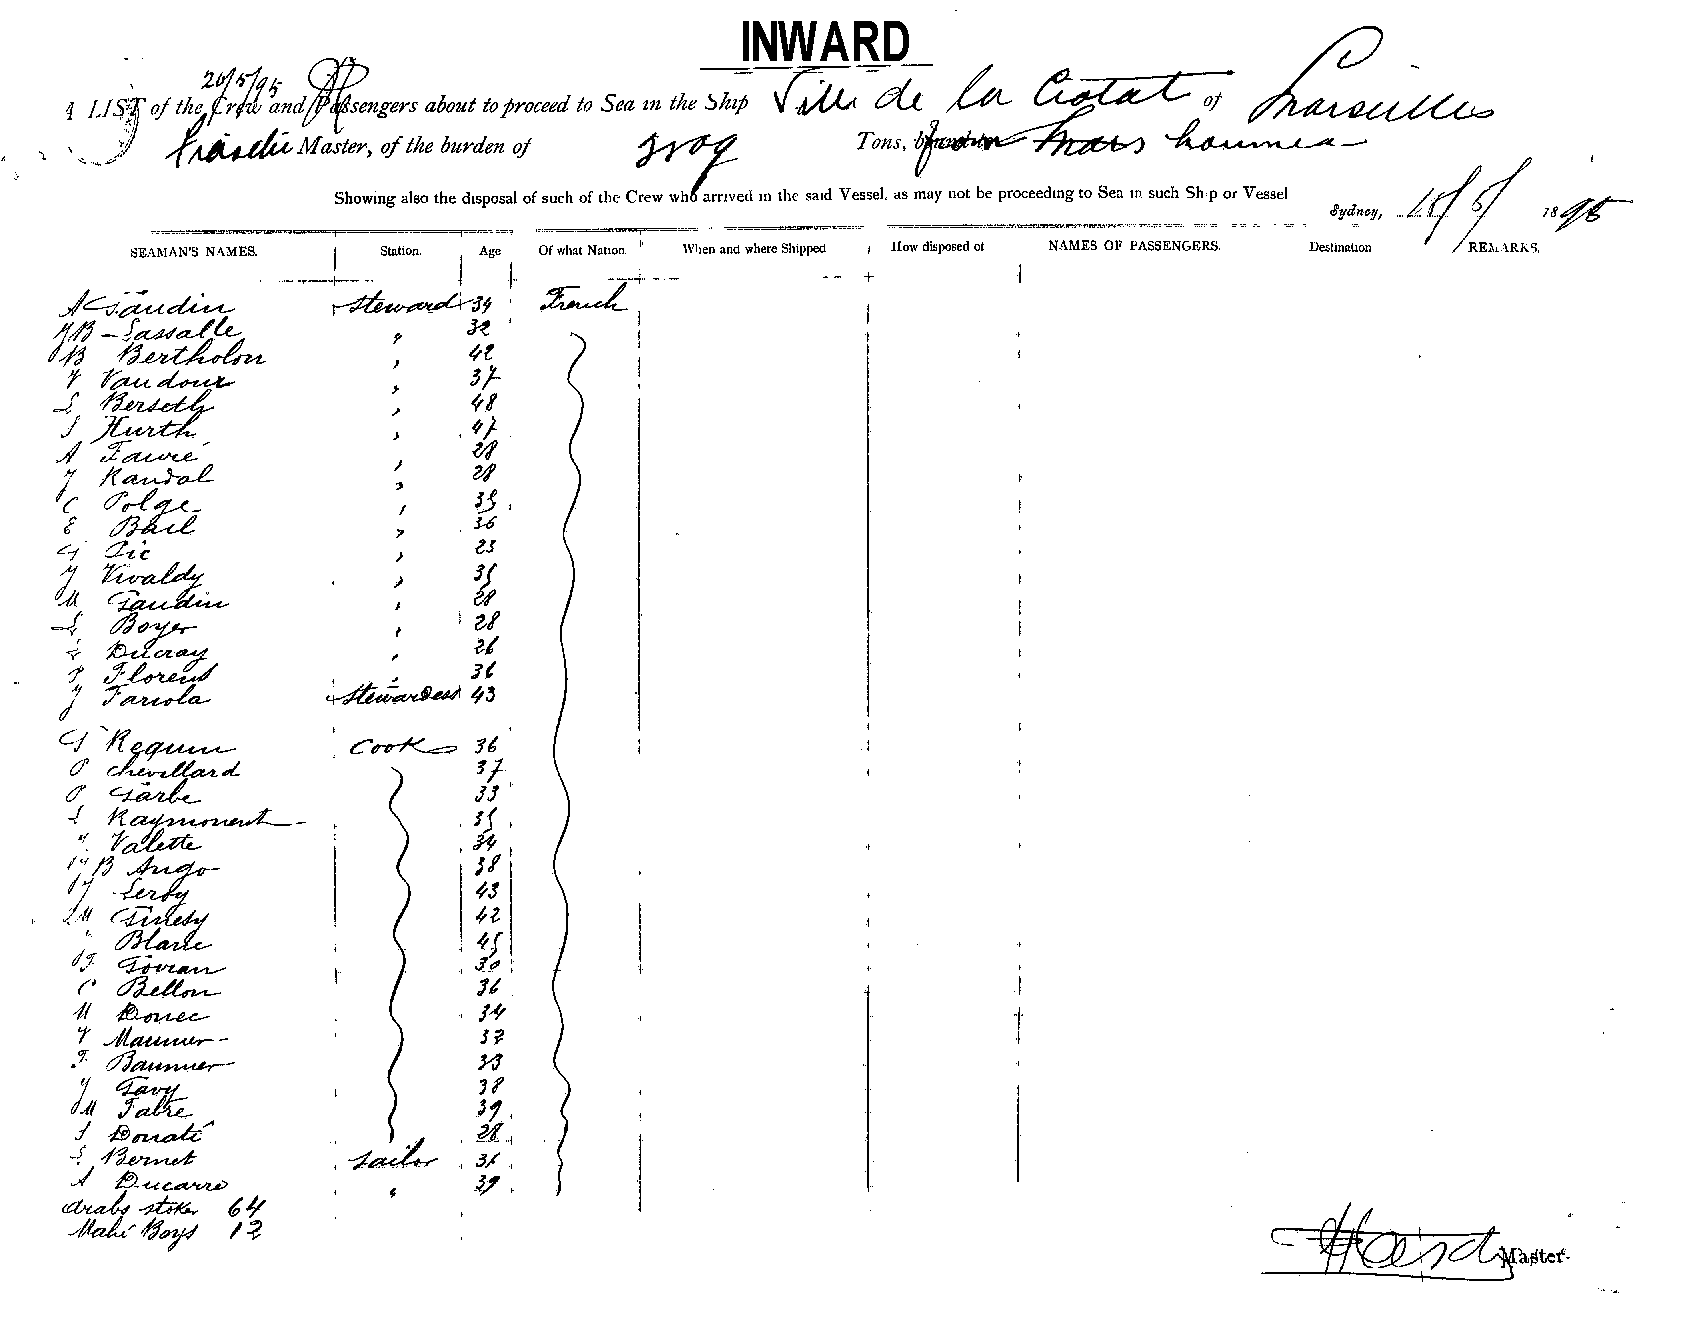 INWARD
20/5/95
A LIST of the Crew and Passengers about to proceed to Sea in the Ship Ville de la Ciotat of Marseilles
Master, of the burden of Tons, from Noumea
Showing also the disposal of such of the Crew who arrived in the said Vessel, as may not be proceeding to Sea in such Ship or Vessel
Sydney, 18/5/ 1895
SEAMAN'S NAMES. Station. Age Of what Nation. When and where Shipped How disposed of NAMES OF PASSENGERS. Destination REMARKS.
A Gaudin Steward 34 French
JB Lassalle " 32
B Bertholon " 42
F Vaudoux " 37
L Berseth " 48
J Hurth " 47
A Favrie " 28
J Randol " 28
C Polge " 35
E Bail " 36
G Pic " 23
J Vivaldy " 35
M Gaudin " 28
L Boyer " 28
L Ducray " 26
P Florens " 36
J Fariola Stewardess 43
G Requin Cook 36
P Chevillard 37
P Garbe 33
L Raymonent 35
Valette 34
JB Ango 38
J Leroy 43
LM Ginesy 42
Blanc 45
F Govran 30
C Bellon 36
M Donec 34
F Maunier 37
F Baumier 33
J Gavy 38
M Fabre 39
J Donati 28
L Bernet Sailor 31
A Ducarre " 39
Arabs stoker 64
Mahi Boys 12
Master